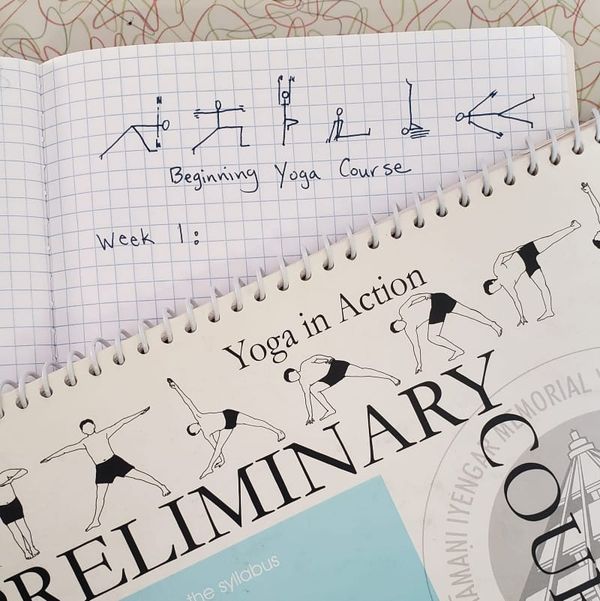 Beginning Yoga Course
Week 1:
Yoga in Action
PRELIMINARY
COU
AMAMANI IYENGAR MEMORIAL
the syllabus